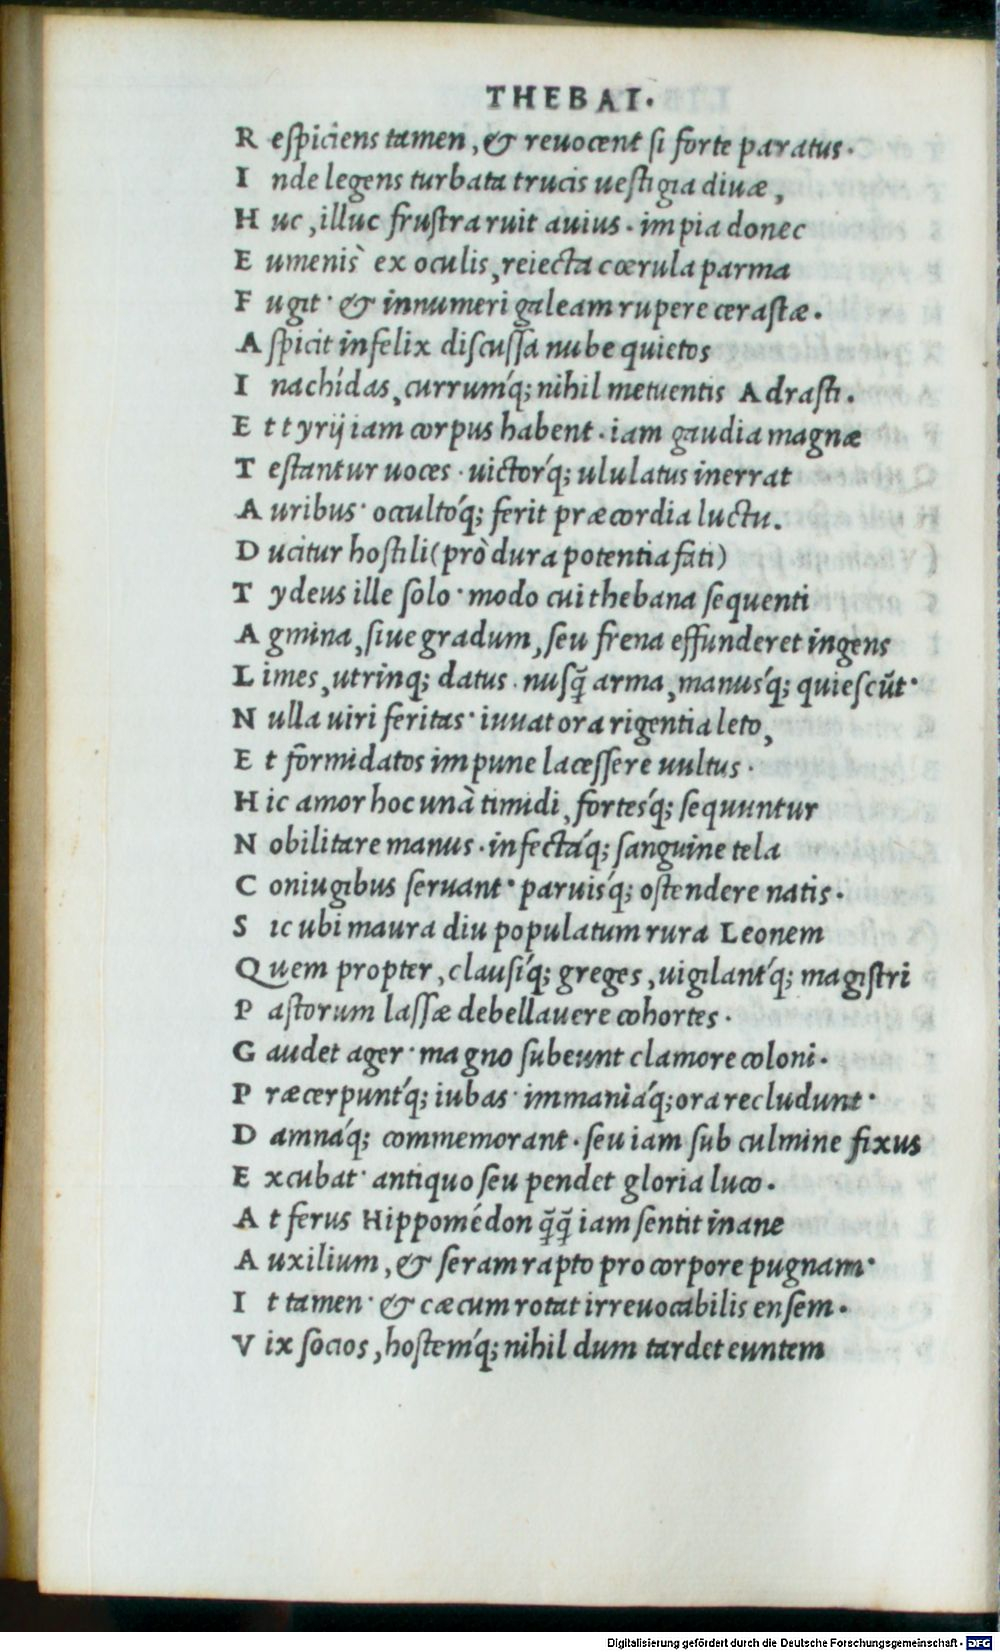 THEBAI.
R espiciens tamen, & reuocent si forte paratus.
I nde legens turbata trucis uestigia diuæ,
H uc, illuc frustra ruit auius. impia donec
E umenis̀ ex oculis, reiecta cœrula parma
F ugit· & innumeri galeam rupere cerastæ.
A spicit infelix discussa nube quietos
I nachídas, currumq́; nihil metuentis Adrasti.
E t tyrij iam corpus habent. iam gaudia magnæ
T estantur uoces · uictorq́; ululatus inerrat
A uribus· occultoq́; ferit præcordia luctu.
D ucitur hostili (prò dura potentia fati)
T ydeus ille solo· modo cui thebana sequenti
A gmina, siue gradum, seu frena effunderet ingens
L imes, utrinq; datus. nusq̃ arma, manusq́; quiescũt·
N ulla uiri feritas· iuuat ora rigentia leto,
E t formidatos impune lacessere uultus.
H ic amor hoc unà timidi, fortesq́; sequuntur
N obilitare manus. infectaq́; sanguine tela
C oniugibus seruant· paruisq́; ostendere natis.
S ic ubi maura diu populatum rura Leonem
Q uem propter, clausiq́; greges, uigilantq́; magistri
P astorum lassæ debellauere cohortes.
G audet ager· magno subeunt clamore coloni.
P ræcerpuntq́; iubas· immaniaq́; ora recludunt·
D amnaq́; commemorant. seu iam sub culmine fixus
E xcubat· antiquo seu pendet gloria luco.
A t ferus Hippomédon q̃q̃ iam sentit inane
A uxilium, & seram rapto pro corpore pugnam·
I t tamen· & cæcum rotat irreuocabilis ensem.
V ix socios, hostemq́; nihil dum tardet euntem
Digitalisierung gefördert durch die Deutsche Forschungsgemeinschaft - DFG